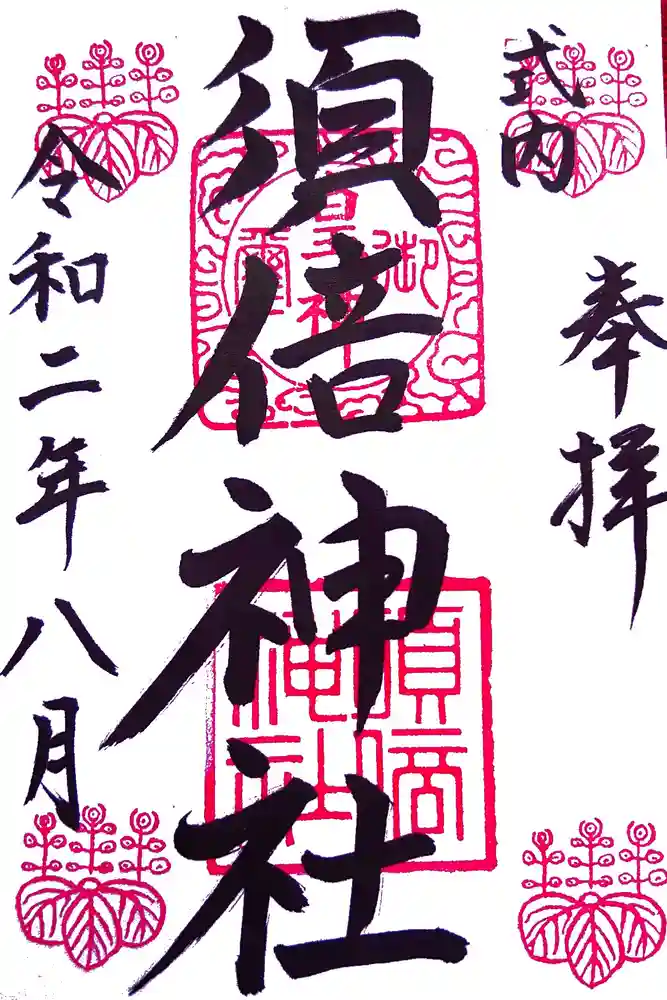 式内
奉拝
須倍神社
令和二年八月
須倍神社